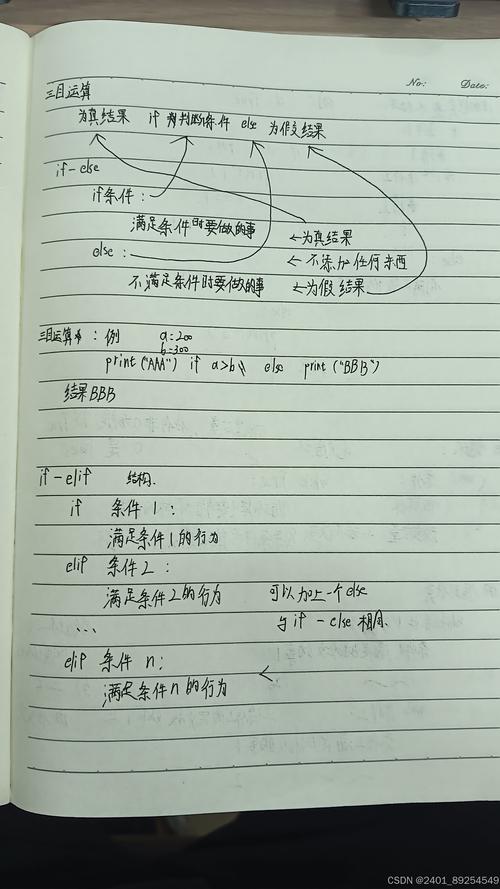 No: Date:
三目运算
为真结果 if 判断的条件 else 为假结果
if-else
if条件:
满足条件时要做的事 ←为真结果
else: ←不添加任何东西
不满足条件时要做的事 ←为假结果
三目运算: 例 a=200
b=300
print("AAA") if a>b else print("BBB")
结果BBB
if-elif 结构.
if 条件1:
满足条件1的行为
elif 条件2:
满足条件2的行为 可以加上一个else
... 与if-else相同.
elif 条件n:
满足条件n的行为
CSDN @2401_89254549